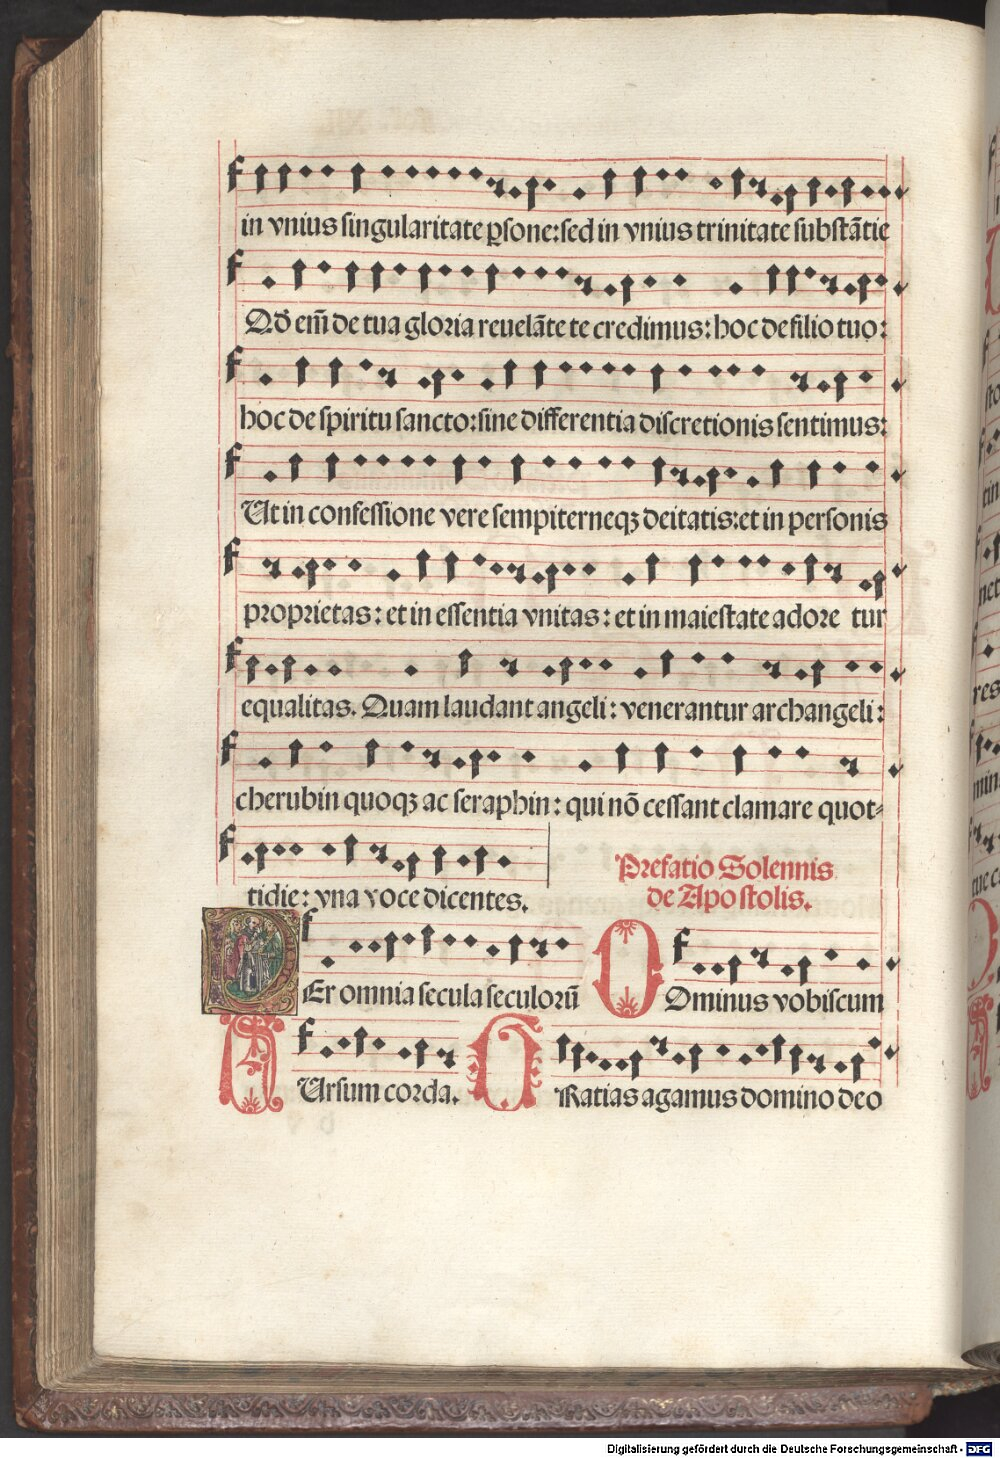 in vnius singularitate ꝑsone: sed in vnius trinitate substātie
Qđ em̄ de tua gloria reuelāte te credimus: hoc de filio tuo:
hoc de spiritu sancto: sine differentia discretionis sentimus:
Ut in confessione vere sempiterneqꝫ deitatis: et in personis
proprietas: et in essentia vnitas: et in maiestate adore tur
equalitas. Quam laudant angeli: venerantur archangeli:
cherubin quoqꝫ ac seraphin: qui nō cessant clamare quot⸗
tidie: vna voce dicentes.
Prefatio Solennis
de Apostolis.
PEr omnia secula seculorū DOminus vobiscum
SUrsum corda. GRatias agamus domino deo
Digitalisierung gefördert durch die Deutsche Forschungsgemeinschaft - DFG